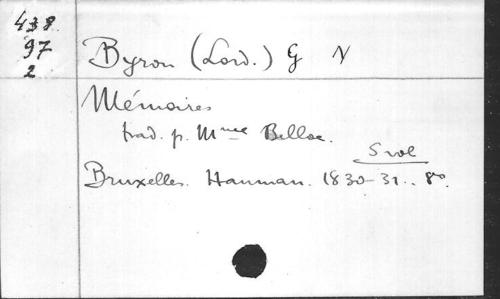 438
97
2
Byron (Lord.) G N
Mémoires
trad. p. Mme Belloc.
5 vol
Bruxelles. Hauman. 1830-31.. 8o.